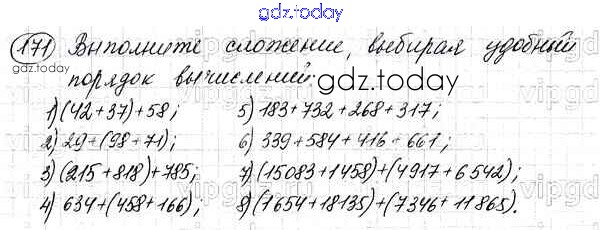 gdz.today
171 Выполните сложение, выбирая удобный
gdz.today
порядок вычислений:
gdz.today
1) (42+37)+58; 5) 183+732+268+317;
2) 29+(98+71); 6) 339+584+416+661;
3) (215+818)+785; 7) (15083+1458)+(4917+6542);
4) 634+(458+166); 8) (1654+18135)+(7346+11865).